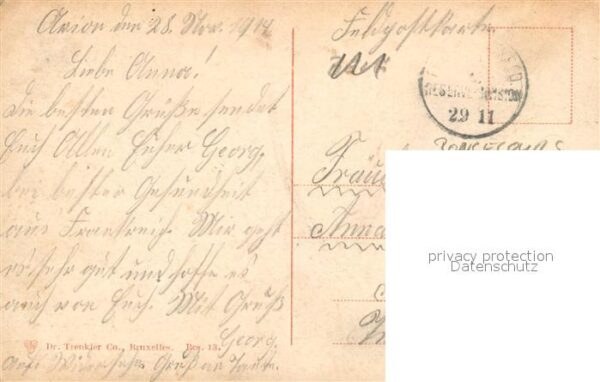 Arlon den 28. Nov. 1914
Liebe Anna!
Die besten Grüße sendet
Euch Allen Euher Georg.
bei bester Gesundheit
aus Frankreich. Mir geht
es sehr gut und hoffe es
auch von Euch. Mit Gruß
Georg.
auf Wiedersehn Gruß an Tante.
Dr. Trenkler Co., Bruxelles. Bes. 13.
Feldpostkarte
RESERVE-DIVISION
29 11
Fräu
Anna
privacy protection
Datenschutz